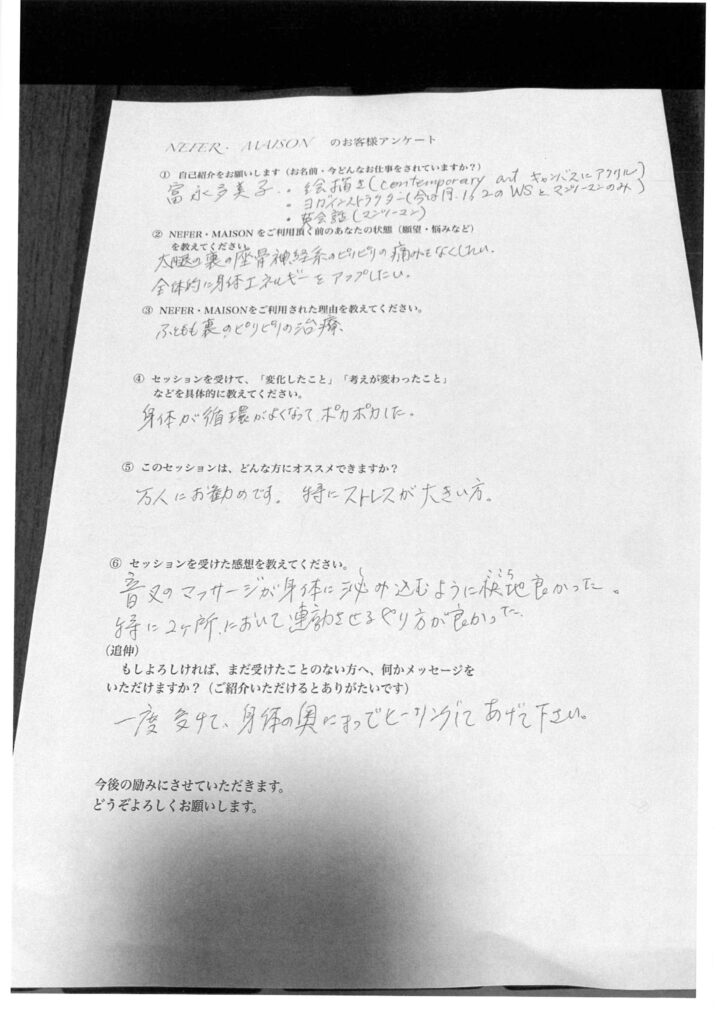 NEFER・MAISON のお客様アンケート
① 自己紹介をお願いします（お名前・今どんなお仕事をされていますか？）
富永多美子・・絵描き(contemporary art キャンバスにアクリル)
・ヨガインストラクター(今は月. のWSとマンツーマンのみ)
・英会話(マンツーマン)
② NEFER・MAISON をご利用頂く前のあなたの状態（願望・悩みなど）
を教えてください。
大腿の裏の座骨神経系のピリピリの痛みをなくしたい。
全体的に身体エネルギーをアップしたい。
③ NEFER・MAISONをご利用された理由を教えてください。
ふともも裏のピリピリの治療
④ セッションを受けて、「変化したこと」「考えが変わったこと」
などを具体的に教えてください。
身体が循環がよくなって、ポカポカした。
⑤ このセッションは、どんな方にオススメできますか？
万人にお勧めです。特にストレスが大きい方。
⑥ セッションを受けた感想を教えてください。
音叉のマッサージが身体に泌み込むように快地良かった。
特に2ヶ所において連動させるやり方が良かった。
（追伸）
もしよろしければ、まだ受けたことのない方へ、何かメッセージを
いただけますか？（ご紹介いただけるとありがたいです）
一度受けて、身体の奥にまでヒーリングしてあげて下さい。
今後の励みにさせていただきます。
どうぞよろしくお願いします。